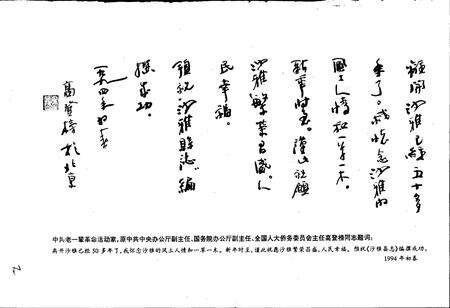 离开沙雅已经五十多
年了。我怀念沙雅的
风土人情和一草一木。
新年时至。谨此祝愿
沙雅繁荣昌盛。人
民幸福。
预祝《沙雅县志》编
撰成功。
一九九四年初春
高登榜于北京
中共老一辈革命活动家，原中共中央办公厅副主任、国务院办公厅副主任、全国人大侨务委员会主任高登榜同志题词：
离开沙雅已经50多年了。我怀念沙雅的风土人情和一草一木。新年时至，谨此祝愿沙雅繁荣昌盛，人民幸福。预祝《沙雅县志》编撰成功。
1994年初春